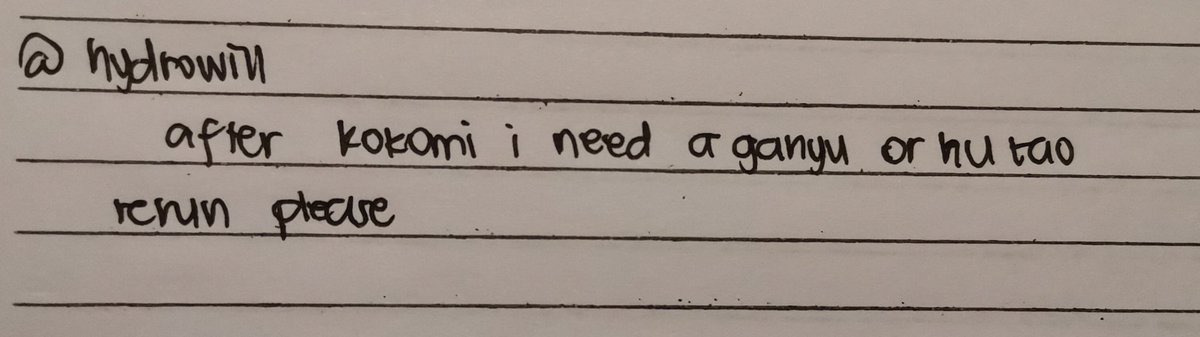 @ hydrowill
after kokomi i need a ganyu or hu tao
rerun please